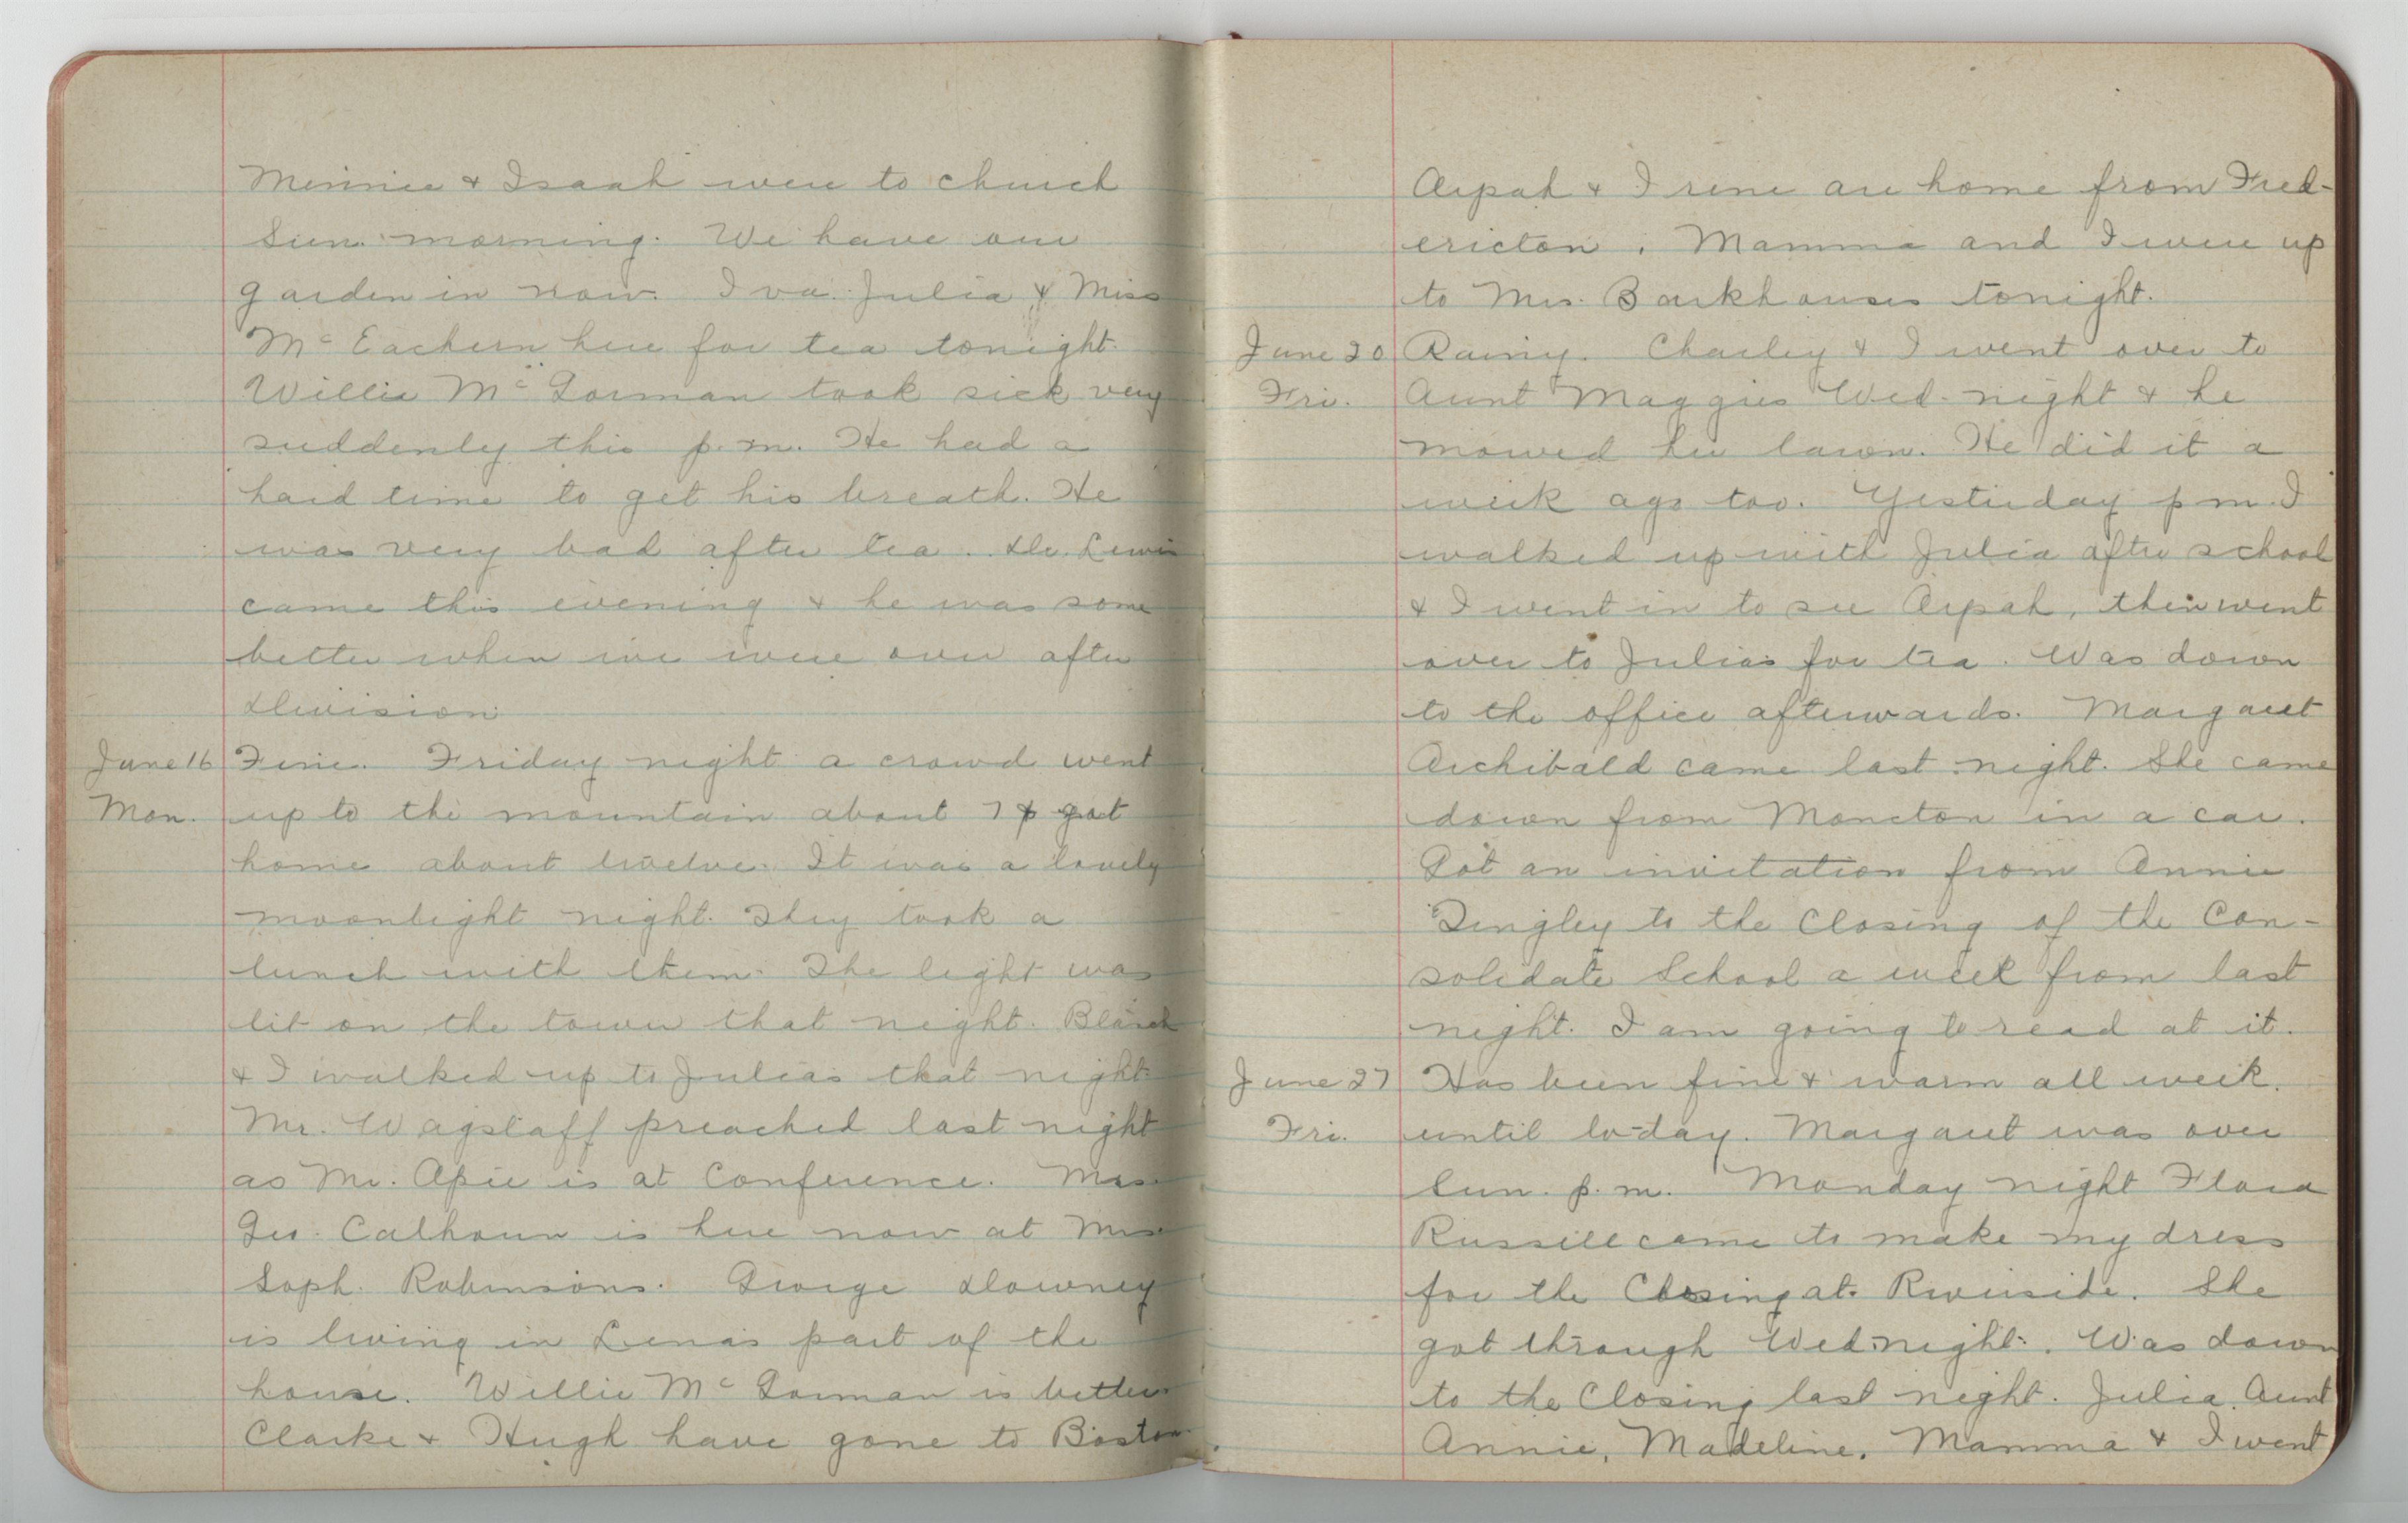 Minnie & Isaah were to church
Sun. morning. We have our
garden in now. Iva. Julia & Miss
McEachern here for tea tonight.
Willie McGorman took sick very
suddenly this p.m. He had a
hard time to get his breath. He
was very bad after tea. Dr. Lewis
came this evening & he was some
better when we were over after
Division
June 16 Fine. Friday night a crowd went
Mon. up to the mountain about 7 & got
home about twelve. It was a lovely
moonlight night. They took a
lunch with them. The light was
lit on the tower that night. Blanch
& I walked up to Julia's that night.
Mr. Wagstaff preached last night
as Mr. Opie is at Conference. Mrs.
Geo. Calhoun is here now at Mrs.
Soph. Robinsons. George Downey
is living in Lena's part of the
house. Willie McGorman is better.
Clarke & Hugh have gone to Boston.
Arpah & Irene are home from Fred-
ericton. Mamma and I were up
to Mrs. Barkhouses tonight.
June 20 Rainy. Charley & I went over to
Fri. Aunt Maggies Wed. night & he
mowed her lawn. He did it a
week ago too. Yesterday p m. I
walked up with Julia after school
& I went in to see Arpah, then went
over to Julia's for tea. Was down
to the office afterwards. Margaret
Archibald came last night. She came
down from Moncton in a car.
Got an invitation from Annie
Tingley to the Closing of the Con-
solidate School a week from last
night. I am going to read at it.
June 27 Has been fine & warm all week.
Fri. until to-day. Margaret was over
Sun. p.m. Monday night Flora
Russell came to make my dress
for the Closing at Riverside. She
got through Wed. night. Was down
to the Closing last night. Julia, Aunt
Annie, Madeline, Mamma & I went